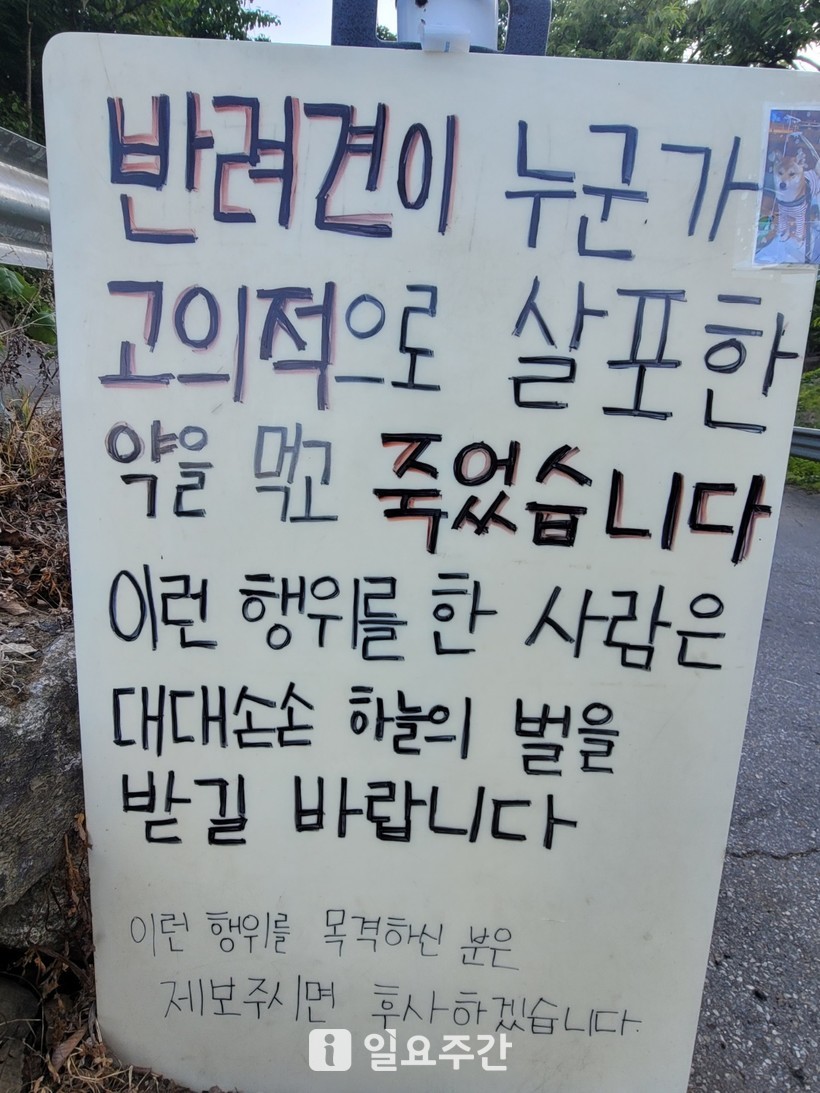 반려견이 누군가
고의적으로 살포한
약을 먹고 죽었습니다
이런 행위를 한 사람은
대대손손 하늘의 벌을
받길 바랍니다
이런 행위를 목격하신 분은
제보주시면 후사하겠습니다.
일요주간